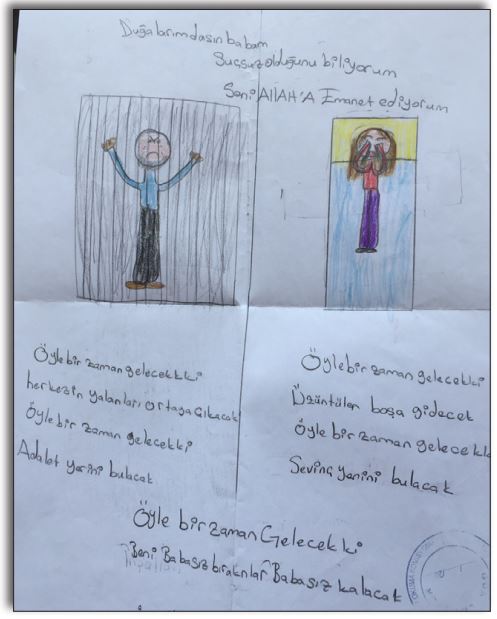 Duğalarımdasın babam
Suçsuz olduğunu biliyorum
Seni ALLAH'A Emanet ediyorum
Öyle bir zaman gelecekki
herkezin yalanları ortaya Çıkacak
Öyle bir zaman gelecekki
Adalet yerini bulacak
Öyle bir zaman gelecekki
Üzüntüler boşa gidecek
Öyle bir zaman gelecekki
Sevinç yerini bulacak
Öyle bir zaman Gelecekki
Beni Babasız bıraknlar Babasız kalacak